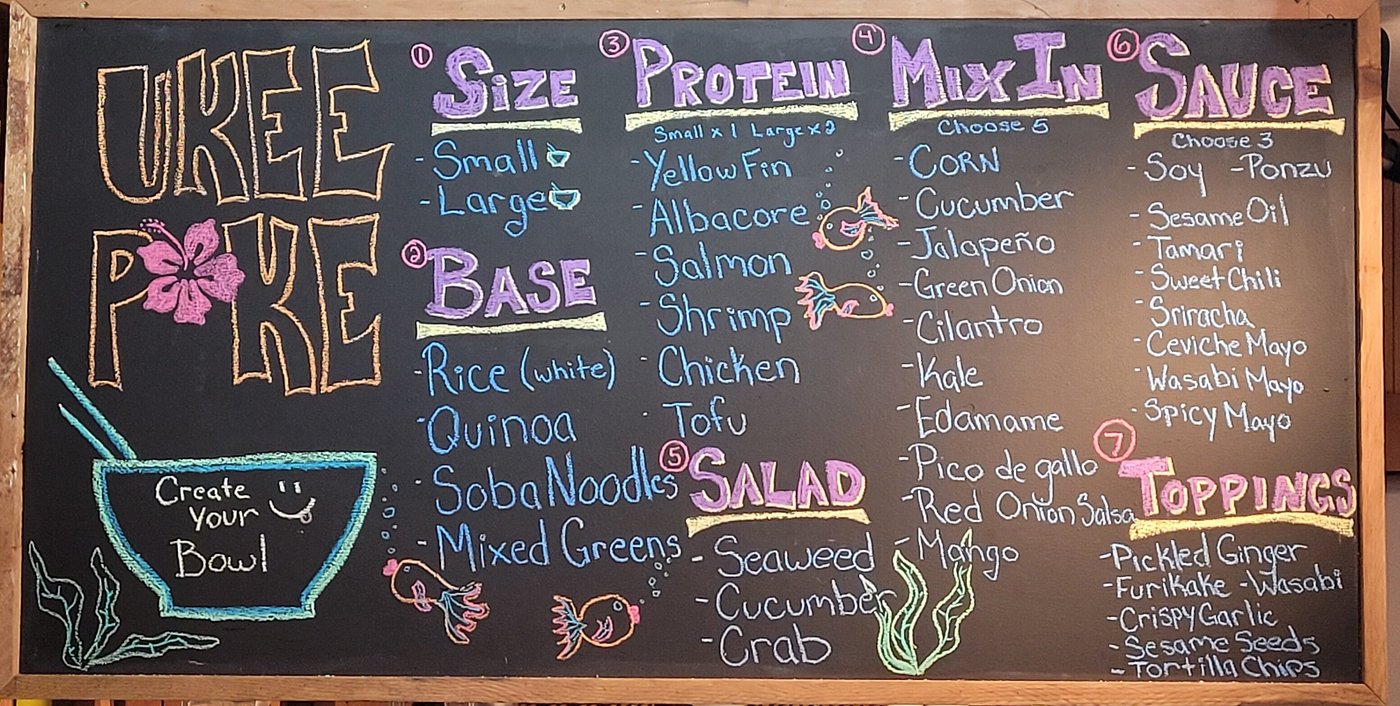 UKEE
POKE
Create
Your
Bowl
1 Size
- Small
- Large
2 BASE
- Rice (white)
- Quinoa
- Soba Noodles
- Mixed Greens
3 PROTEIN
Small x 1 Large x 2
- Yellow Fin
- Albacore
- Salmon
- Shrimp
- Chicken
- Tofu
5 SALAD
- Seaweed
- Cucumber
- Crab
4 MIX IN
Choose 5
- CORN
- Cucumber
- Jalapeño
- Green Onion
- Cilantro
- Kale
- Edamame
- Pico de gallo
- Red Onion Salsa
- Mango
6 SAUCE
Choose 3
- Soy - Ponzu
- Sesame Oil
- Tamari
- Sweet Chili
- Sriracha
- Ceviche Mayo
- Wasabi Mayo
- Spicy Mayo
7 TOPPINGS
- Pickled Ginger
- Furikake - Wasabi
- Crispy Garlic
- Sesame Seeds
- Tortilla Chips